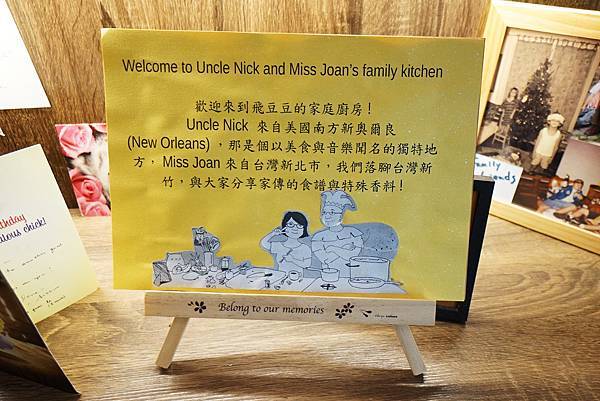 Welcome to Uncle Nick and Miss Joan's family kitchen
歡迎來到飛豆豆的家庭廚房!
Uncle Nick 來自美國南方新奧爾良
(New Orleans) ，那是個以美食與音樂聞名的獨特地
方， Miss Joan 來自台灣新北市，我們落腳台灣新
竹，與大家分享家傳的食譜與特殊香料!
Belong to our memories
family
friends
chick!